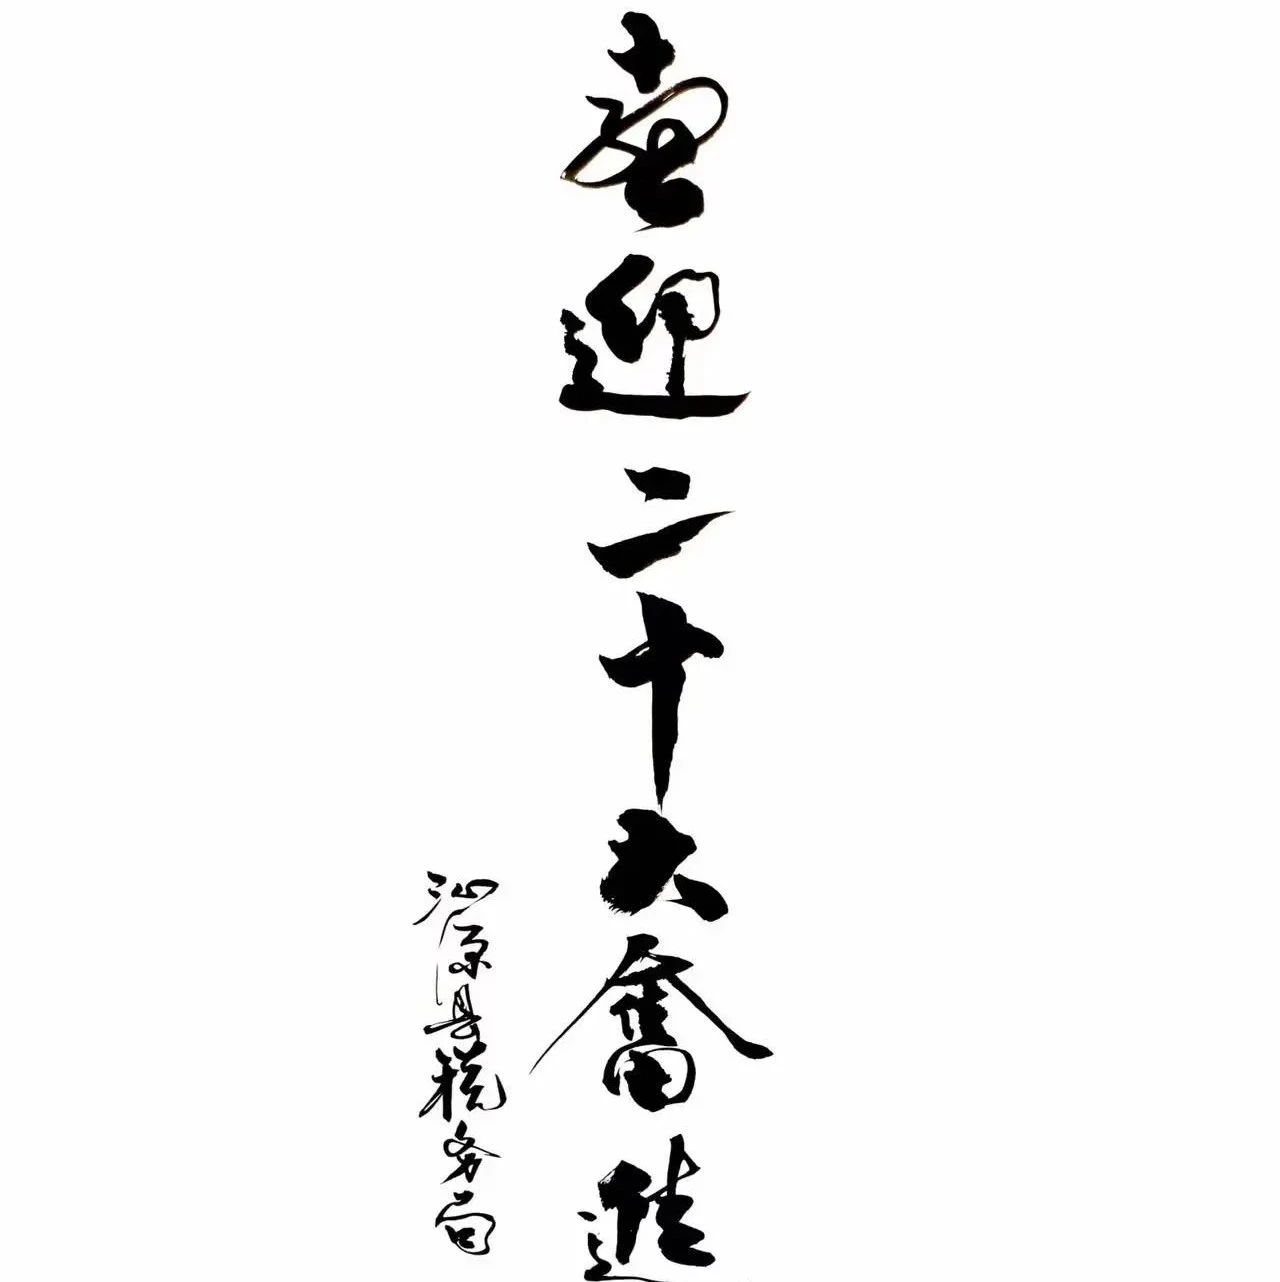 喜迎二十大奮進
沁源县税务局